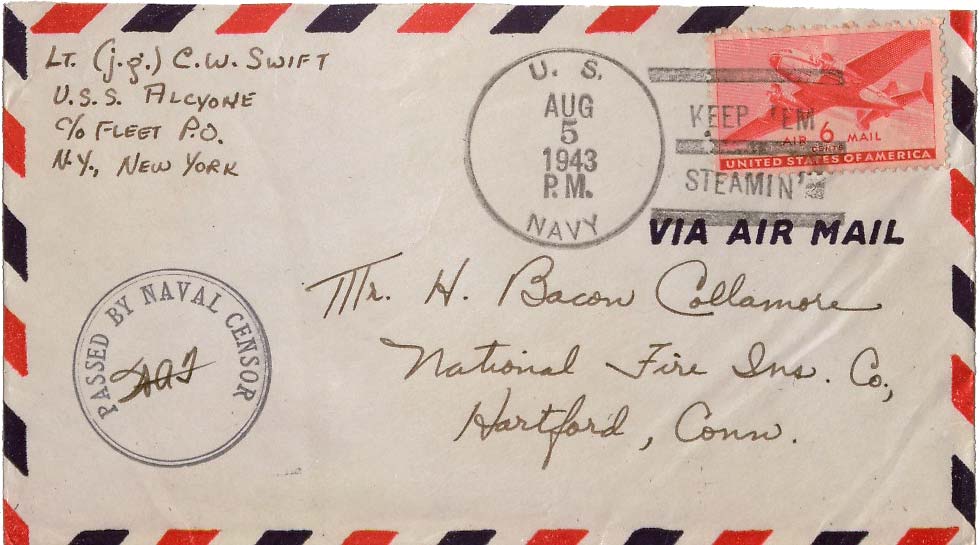 LT. (j.g.) C.W. SWIFT
U.S.S. ALCYONE
C/O FLEET P.O.
N.Y., NEW YORK
U. S.
AUG
5
1943
P.M.
NAVY
KEEP 'EM
STEAMIN'
AIR 6 MAIL
CENTS
UNITED STATES OF AMERICA
VIA AIR MAIL
PASSED BY NAVAL CENSOR
Mr. H. Bacon Collamore
National Fire Ins. Co.,
Hartford, Conn.